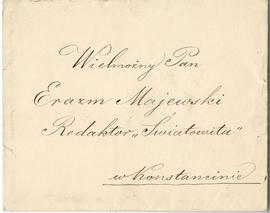 Wielmożny Pan
Erazm Majewski
Redaktor „Światowita"
w Konstancinie